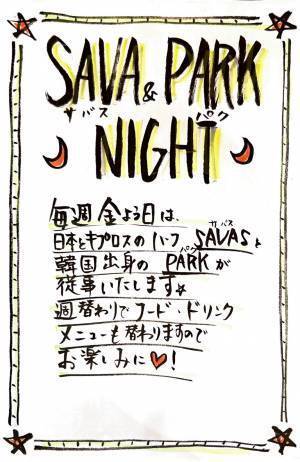 SAVA & PARK
サバス パク
NIGHT
毎週金よる日は、
サバス
日本とキプロスのハーフ SAVASと
パク
韓国出身の PARKが
従事いたします☆
週替わりでフード・ドリンク
メニューも替わりますので
お楽しみに♥!